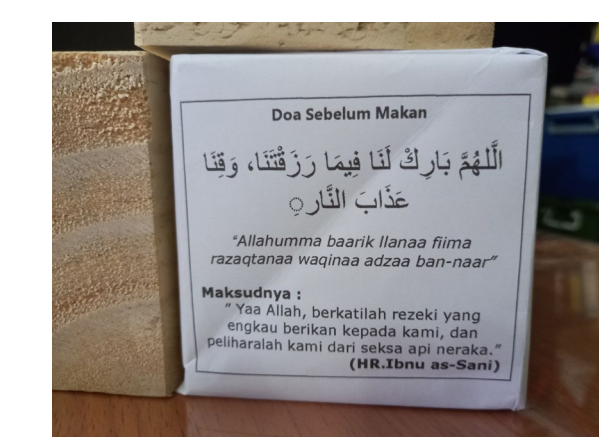 Doa Sebelum Makan
الَّلهُمَّ بَارِكْ لَنَا فِيمَا رَزَقْتَنَا، وَقِنَا
عَذَابَ النَّارِ
“Allahumma baarik llanaa fiima
razaqtanaa waqinaa adzaa ban-naar”
Maksudnya :
” Yaa Allah, berkatilah rezeki yang
engkau berikan kepada kami, dan
peliharalah kami dari seksa api neraka.”
(HR.Ibnu as-Sani)